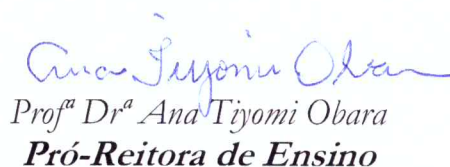 Ana Tiyomi Obara
Profª Drª Ana Tiyomi Obara
Pró-Reitora de Ensino